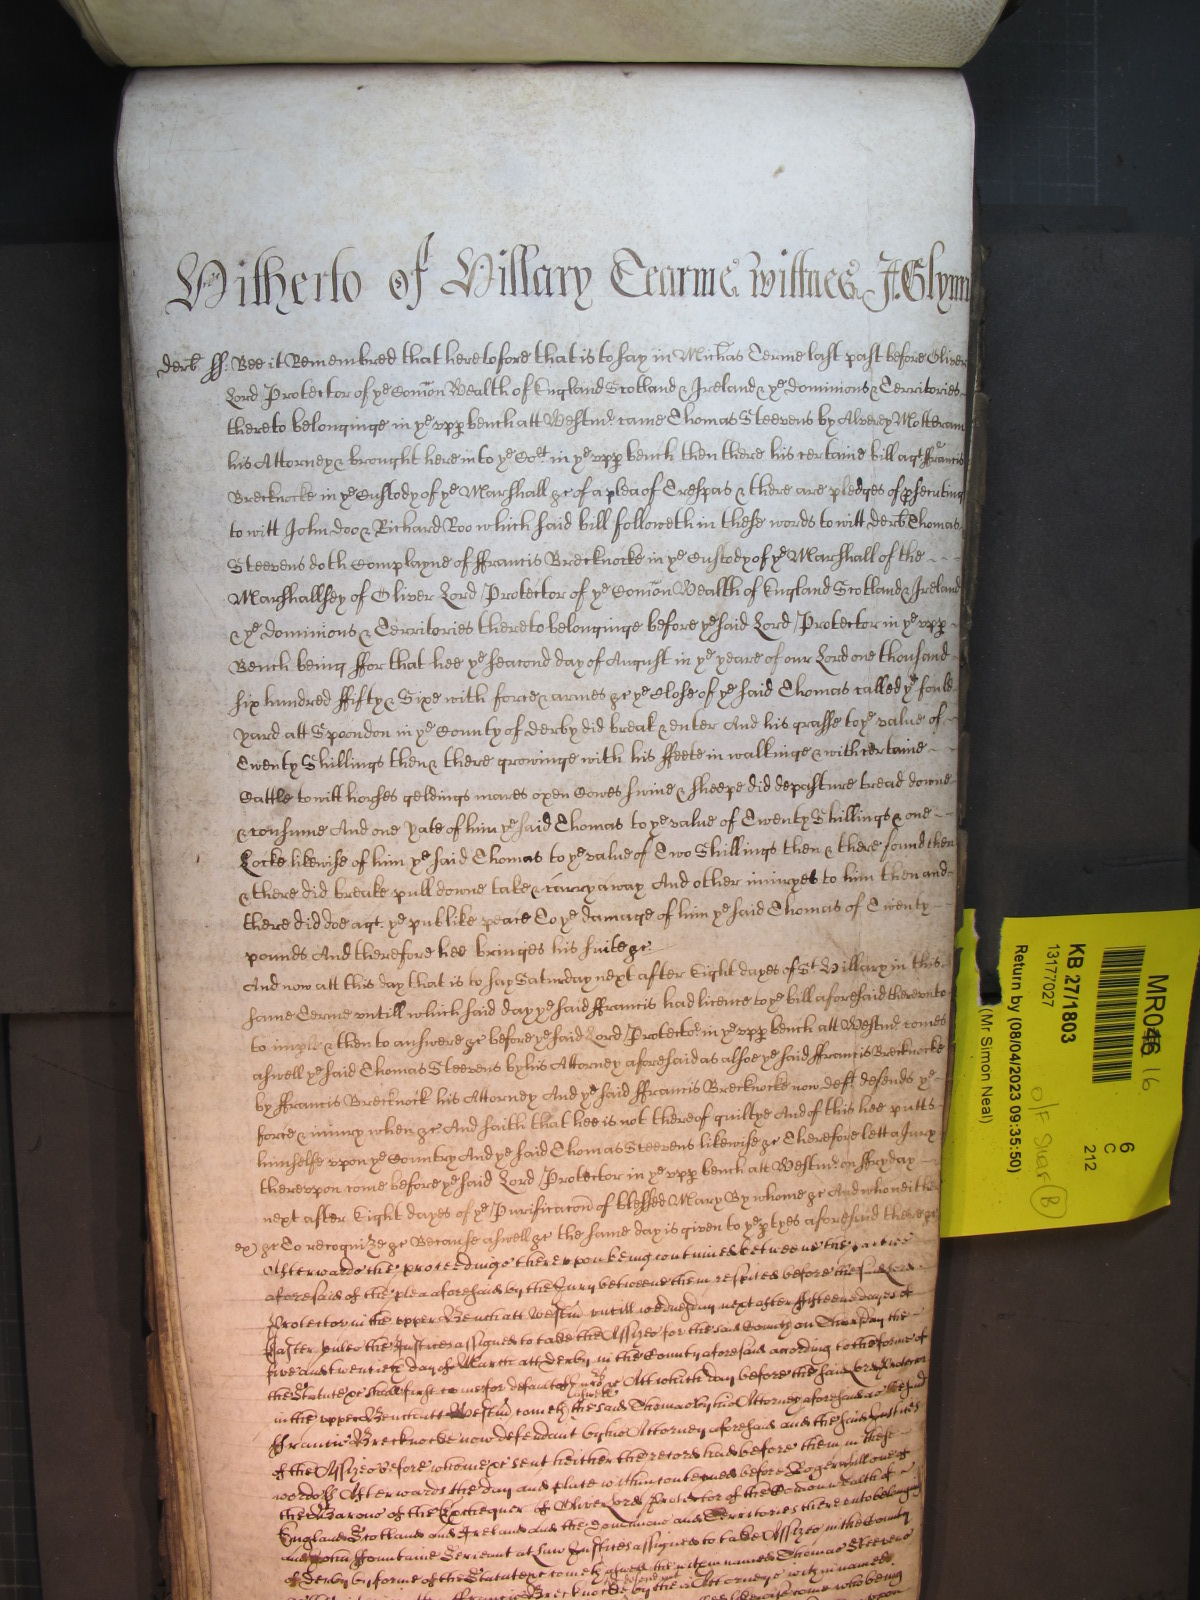 Hitherto of Hillary Tearme wittnes J. Glynn
derb ss. Bee it Remembred that heretofore that is to say in Michas Terme last past before Oliver
Lord Protector of ye Com̄on Wealth of England Scotland & Ireland & ye dominions & Territories
thereto belonginge in ye upp bench att Westmr. came Thomas Steevens by Alverey Motteram
his Attorney & brought here into ye Cort in ye upp bench then there his certaine bill agt ffrancis
Brecknocke in ye Custody of ye Marshall &c of a plea of Trespas & there are pledges of psecuting
to witt John Doo & Richard Roo which said bill followeth in these words to witt derb Thomas
Steevens doth Complayne of ffrancis Brecknocke in ye Custody of ye Marshall of the
Marshallsey of Oliver Lord Protector of ye Com̄on Wealth of England Scotland & Ireland
& ye dominions & Territories thereto belonginge before ye said Lord Protector in ye upp
Bench being ffor that hee ye seacond day of August in ye yeare of our Lord one thousand
six hundred ffifty & Sixe with force & armes &c ye Close of ye said Thomas called ye fould
yard att Spoondon in ye County of Derby did break & enter And his grasse to ye value of
Twenty Shillings then & there growinge with his ffeete in walkinge & with certaine
Cattle to witt horses geldings mares oxen Cowes swine & sheepe did depasture tread downe
& consume And one yate of him ye said Thomas to ye value of Twenty Shillings & one
Locke likewise of him ye said Thomas to ye value of Two Shillings then & there found then
& there did breake pull downe take & carry away And other iniuryes to him then and
there did doe agt. ye publike peace To ye damage of him ye said Thomas of Twenty
pounds And therefore hee bringes his suite &c
And now att this day that is to say Saturday next after Eight dayes of St Hillary in this
same Terme untill which said day ye said ffrancis had licence to ye bill aforesaid thereunto
to imple & then to answere &c before ye said Lord Protector in ye upp bench att Westmr comes
aswell ye said Thomas Steevens by his Attorney aforesaid as alsoe ye said ffrancis Brecknocke
by ffrancis Brecknock his Attorney And ye said ffrancis Brecknocke now deft defends ye
force & iniury when &c And saith that hee is not thereof guiltye And of this hee putts
himselfe upon ye Country And ye said Thomas Steevens likewise &c Therefore lett a Jury
thereupon come before ye said Lord Protector in ye upp bench att Westmr on ffryday
next after Eight dayes of ye Purificacon of blessed Mary By whome &c And who neither
ex) &c To recognize &c Because aswell &c the same day is given to ye ptyes aforesaid there &c
Afterwards the proceedings thereupon being continued betweene the parties
aforesaid of the plea aforesaid by the Jury betweene them respited before the said Lord
Protector in the upper Bench att Westm̄ untill wednesday next after ffifteene dayes of
Easter unles the Justices assigned to take the Assizes for the said County on Thursday the
five and twentieth day of March att Derby in the County aforesaid according to the forme of
the Statute &c shall first come for default of Jurors &c Att which day before the said Lord Protector
in the upper Bench att Westm̄ cometh aswell the said Thomas by his Attorney aforesaid as the said
ffrancis Brecknocke now defendant by his Attorney aforesaid and the said Justices
of the Assizes before whome &c sent heither the record had before them in these
words Afterwards the day and place within conteyned before Roger Hill one of
the Barons of the Exchequer of Oliver Lord Protector of the Com̄onwealth of
England Scotland and Ireland and the Dominions and Territories thereunto belonging
and John ffountaine Serieant at Law Justices assigned to take Assizes in the County
of Derby by forme of the Statute &c cometh aswell the within named Thomas Steevens
ffrancis Brecknocke by the Attorneys within named
MR046 16
KB 27/1803
13177027
Return by (08/04/2023 09:35:50)
(Mr Simon Neal)
6
C
212
O/F Shelf (B)